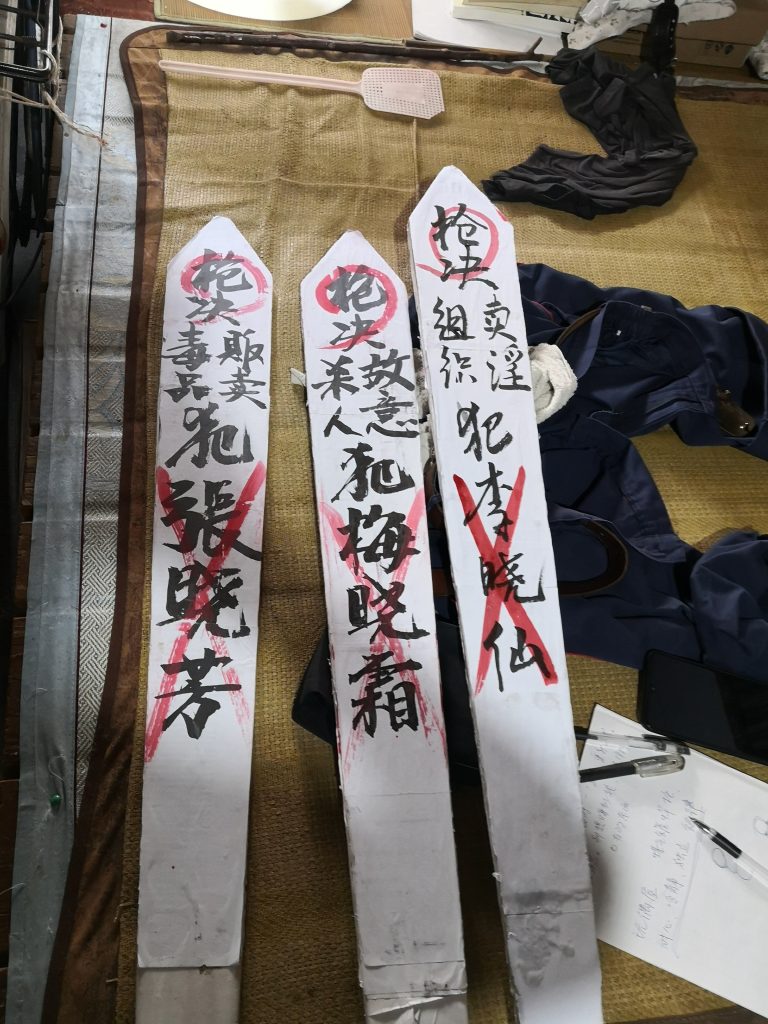 枪决贩卖毒品犯張晓芳
枪决故意杀人犯梅晓霜
枪决组织卖淫犯李晓仙